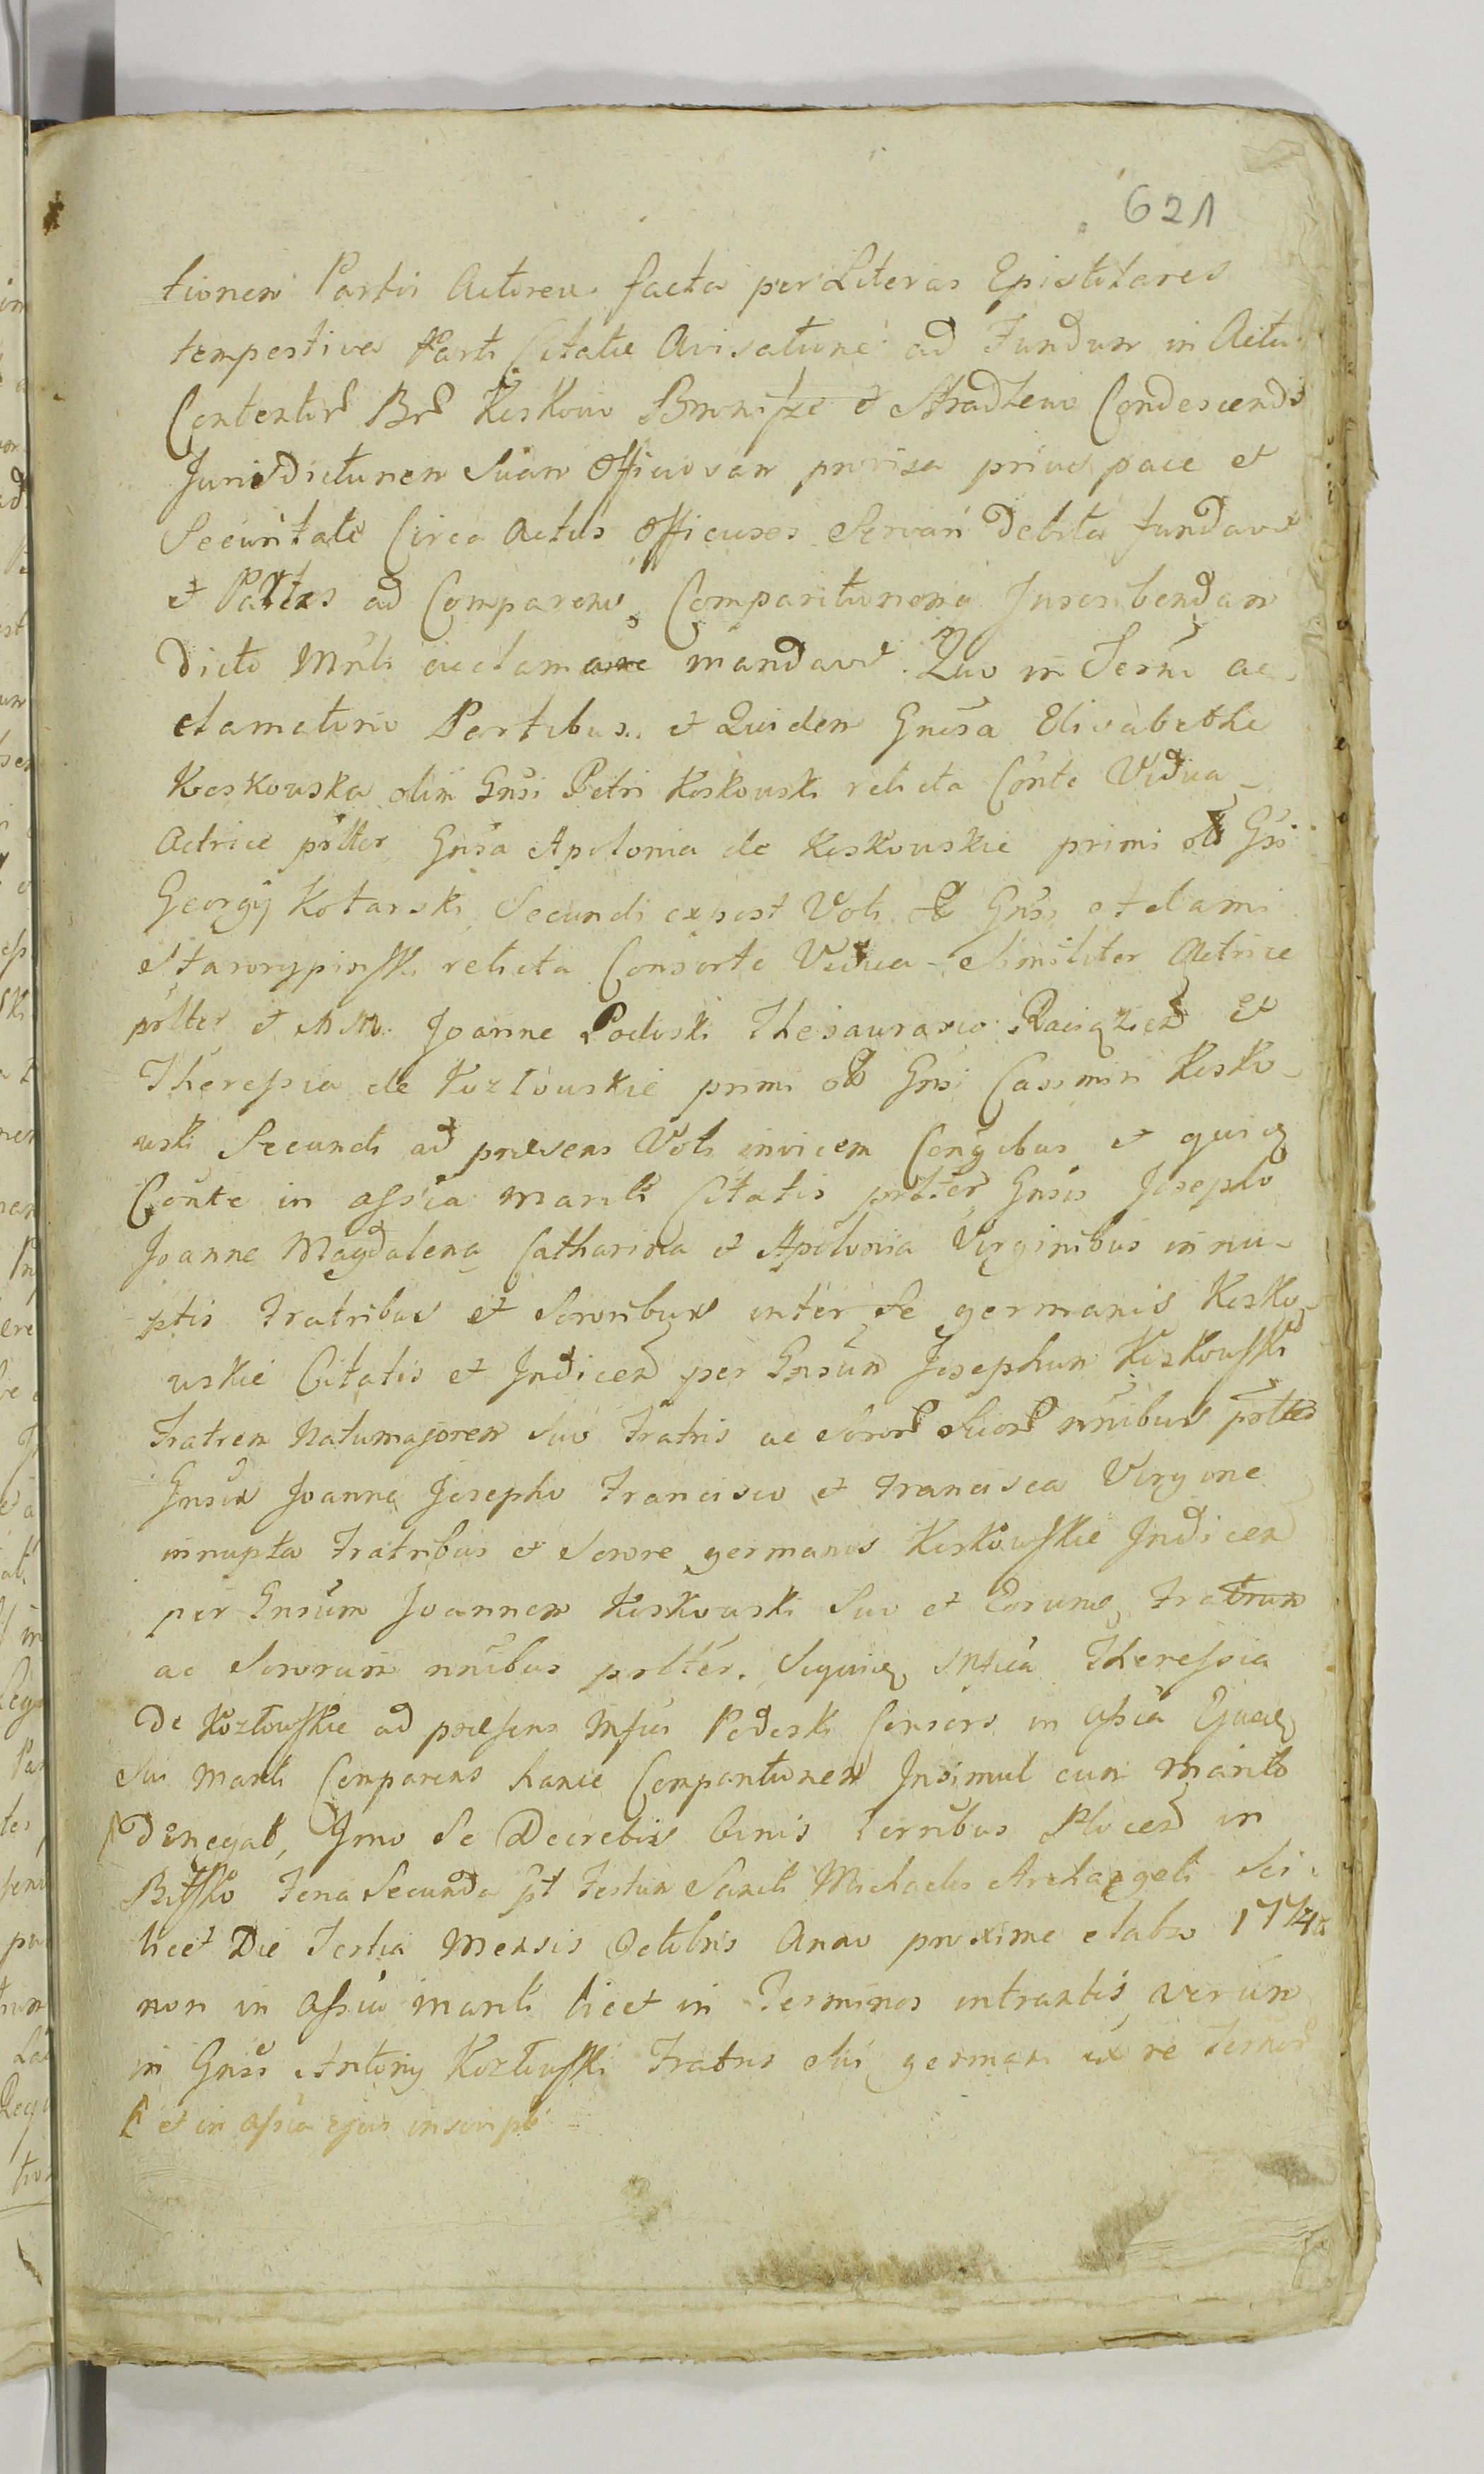 621
tionem Partis Actoreae facta per Literas Epistolares
tempestiva Parti Citatae Avisatione ad Fundum in Actu
Contentor Br Keskowo Bronisze et Stradzewo Condescendit
Jurisdictionem Suam Officiosam provisa prius pace et
Securitate Circa Actus Officiosos Servari Debita fundavit
et Partes ad Comparend Comparitionemq Inscribendam
Dicto Mrli acclamare mandavit. Quo in Termo ac
clamatorio Partibus et Quidem Gnosa Elisabetha
Keskowska olim Gnsi Petri Keskowski relicta Conte Vidua
Actrice psltter Gnsa Apolonia de Keskowskie primi olo Gsi
Georgij Kotarski Secundi expost Voti olo Gnsi Adami
Starorypinski relicta Consorte Vidua Similiter Actrice
psltter et M M. Joanne Podoski Thesaurario Raciązien et
Theressia de Kozłowskie primi olo Gnsi Casimiri Kesko
wski Secundi ad praesens Voti invicem Conjgibus et quidq
Conte in assia mariti Citatis psltter Gnsis Josepho
Joanne Magdalena Catharina et Apolonia Virginibus innu
ptis Fratribus et Sororibus inter Se germanis Kesko
wskie Citatis et Indicen per Gnsum Josephum Keskowski
Fratrem Natumajorem Suo Fratris ac Soror Suor nnibus psltter
Gnsis Joanne Josepho Francisco et Francisca Virgine
innupta Fratribus et Sorore germanis Keskowskie Indicen
per Gnsum Joannem Keskowski Suo et Eorumq Fratrum
ac Sororum nnibus psltter. Siquidq Theressia
De Kozłowskie ad praesens Mfci Podoski Consors in assia Ejusdq
Sui Mariti Comparens hancce Comparitionem Insimul cum Marito
Denegat, Imo Se Decretis binis Terribus Plocen in
Feria Secunda pt Festum Sancti Michaelis Archangeli Sci
licet Die Tertia Mensis Octobris Anno proxime elabso
non in assia mariti licet in Terminos intrantis verum
in Gnsi Antonij Kozłowski Fratris Sui germani ex re Termor
et in assia ejus inscripto